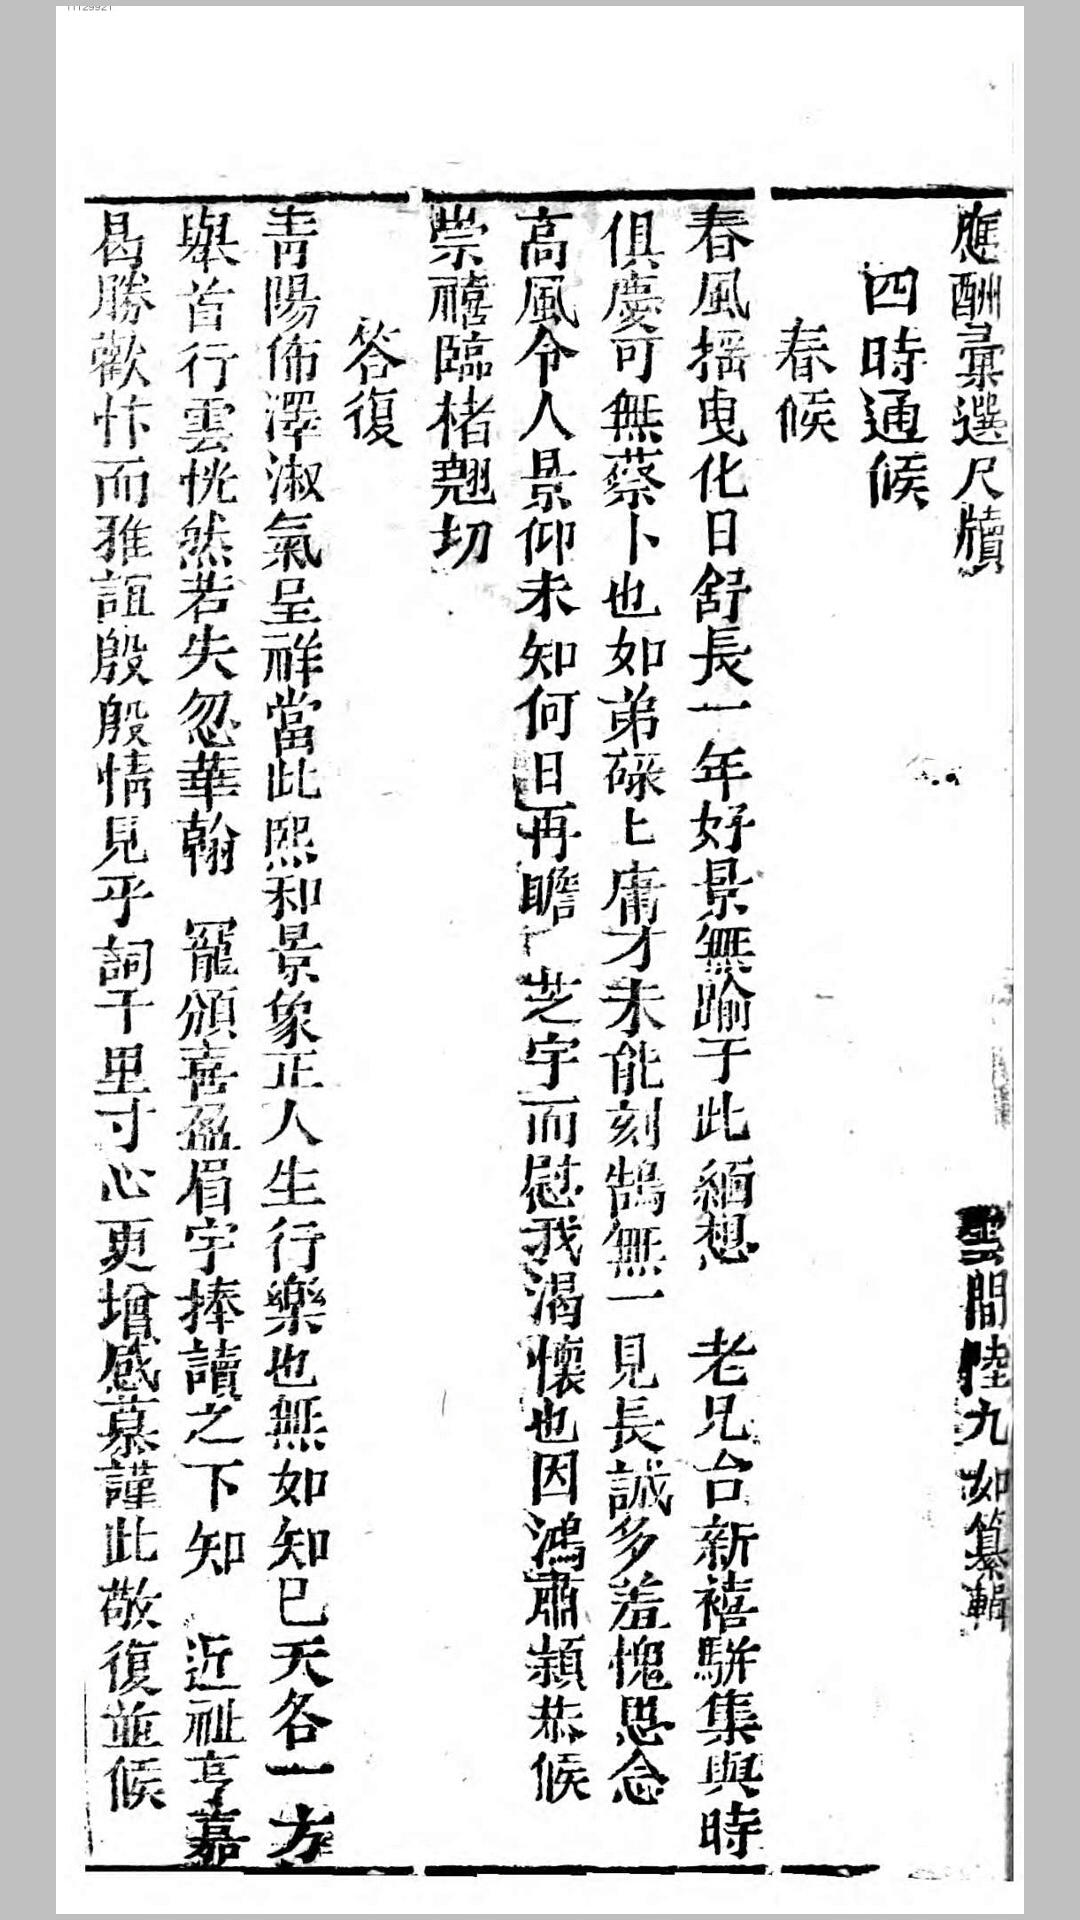 應酬彙選尺牘 雲間陸九如纂輯
四時通候
春候
春風揺曳化日舒長一年好景無踰于此緬想 老兄台新禧駢集與時
俱慶可無蔡卜也如弟碌上庸才未能刻鵠無一見長誠多羞愧思念
高風令人景仰未知何日再瞻 芝宇而慰我渴懷也因鴻肅頴恭候
崇禧臨楮翹切
答復
青陽佈澤淑氣呈祥當此熙和景象正人生行樂也無如知已天各一方
舉首行雲恍然若失忽華翰 寵頒喜盈眉宇捧讀之下知 近祉亨嘉
曷勝歡忭而雅誼殷殷情見乎詞千里寸心更增感慕謹此敬復並候